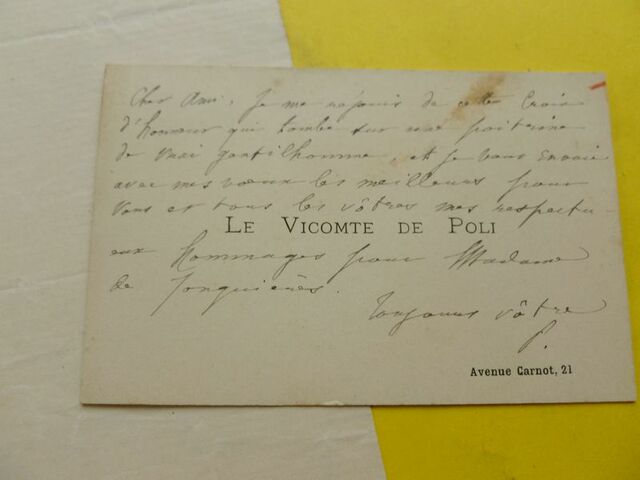 Cher Ami, je me réjouis de cette Croix
d'honneur qui tombe sur une poitrine
de vrai gentilhomme, et je vous envoie
avec mes vœux les meilleurs pour
vous et tous les vôtres mes respectu-
LE VICOMTE DE POLI
eux hommages pour Madame
de Jonquières.
Toujours vôtre
P.
Avenue Carnot, 21